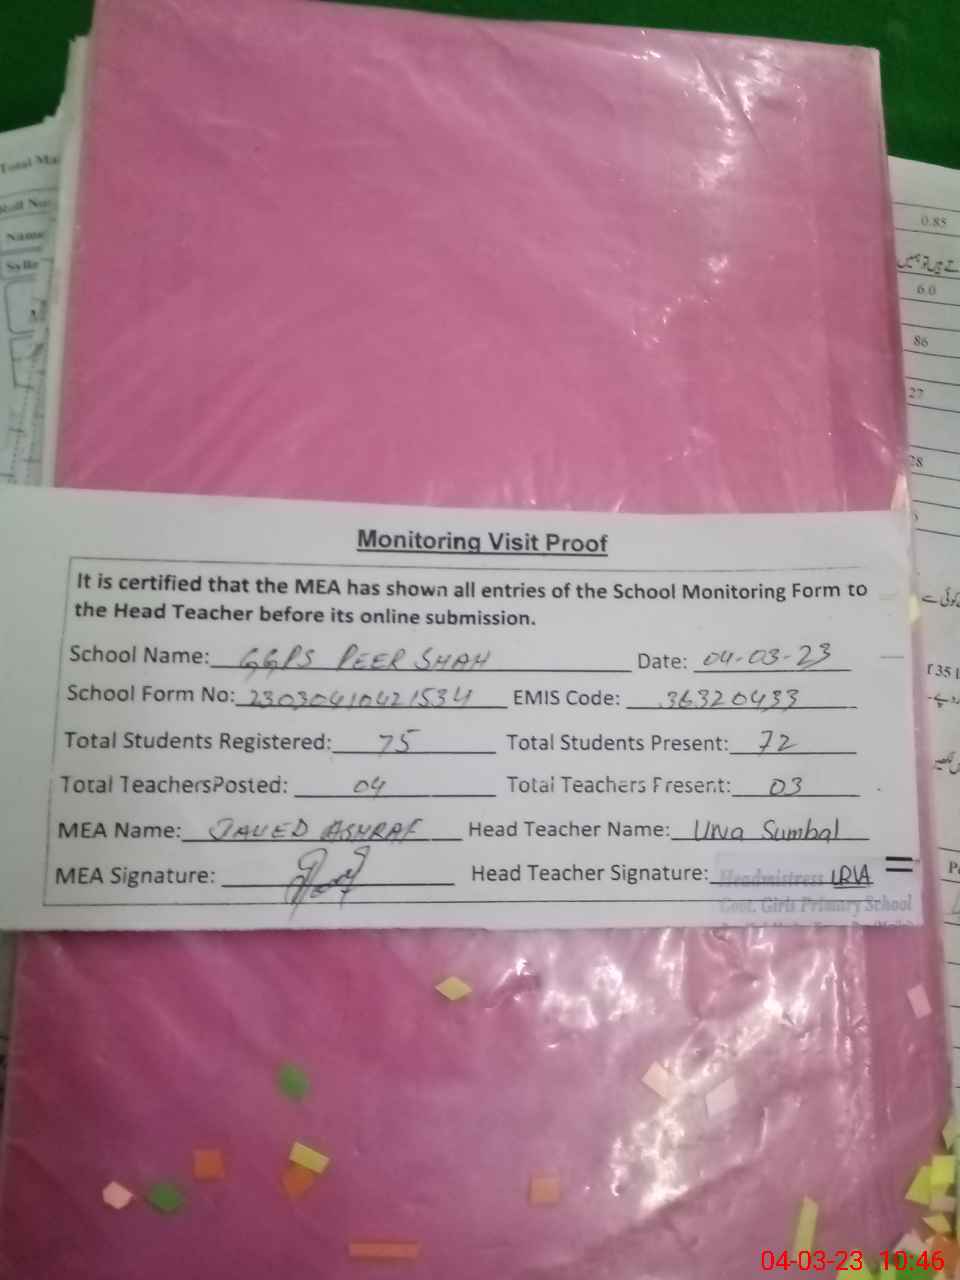 Total
Roll No:
Name
0.85
6.0
86
27
28
Monitoring Visit Proof
It is certified that the MEA has shown all entries of the School Monitoring Form to
the Head Teacher before its online submission.
School Name: GGPS PEER SHAH Date: 04-03-23
School Form No: 23030410421534 EMIS Code: 36320433
Total Students Registered: 75 Total Students Present: 72
Total TeachersPosted: 04 Total Teachers Present: 03
MEA Name: JAVED ASHRAF Head Teacher Name: Urva Sumbal
MEA Signature: Head Teacher Signature: URVA
Headmistress
Govt. Girls Primary School
04-03-23 10:46